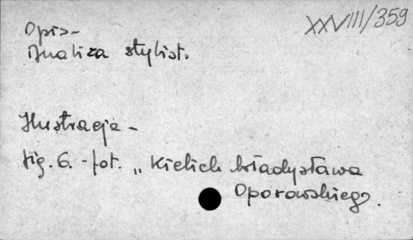 XXVIII/359
Opis-
Analiza stylist.
Ilustracja-
fig. 6. - fot. „Kielich Władysława
Oporowskiego.